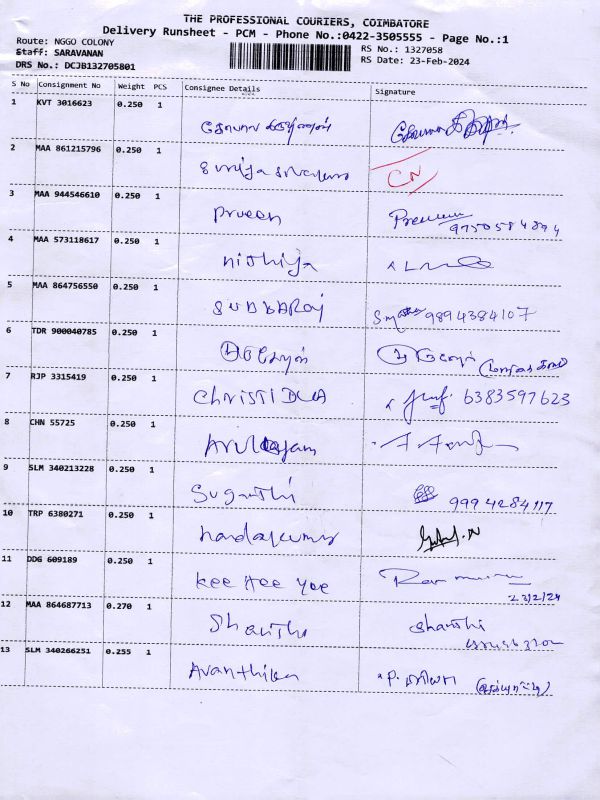 THE PROFESSIONAL COURIERS, COIMBATORE
Delivery Runsheet - PCM - Phone No.:0422-3505555 - Page No.:1
Route: NGGO COLONY
Staff: SARAVANAN
DRS No.: DCJB132705801
RS No.: 1327058
RS Date: 23-Feb-2024
S No Consignment No Weight PCS Consignee Details Signature
1 KVT 3016623 0.250 1
2 MAA 861215796 0.250 1 CN
3 MAA 944546610 0.250 1 Praveen
4 MAA 573118617 0.250 1 Nithija
5 MAA 864756550 0.250 1 SUBBARAJ 9894384107
6 TDR 900040785 0.250 1
7 RJP 3315419 0.250 1 6383597623
8 CHN 55725 0.250 1
9 SLM 340213228 0.250 1 Suganthi 9994284117
10 TRP 6380271 0.250 1
11 DDG 609189 0.250 1 Kee Hee Yee
23/2/24
12 MAA 864687713 0.270 1 Shanthi Shanthi
13 SLM 340266251 0.255 1 Avanthika